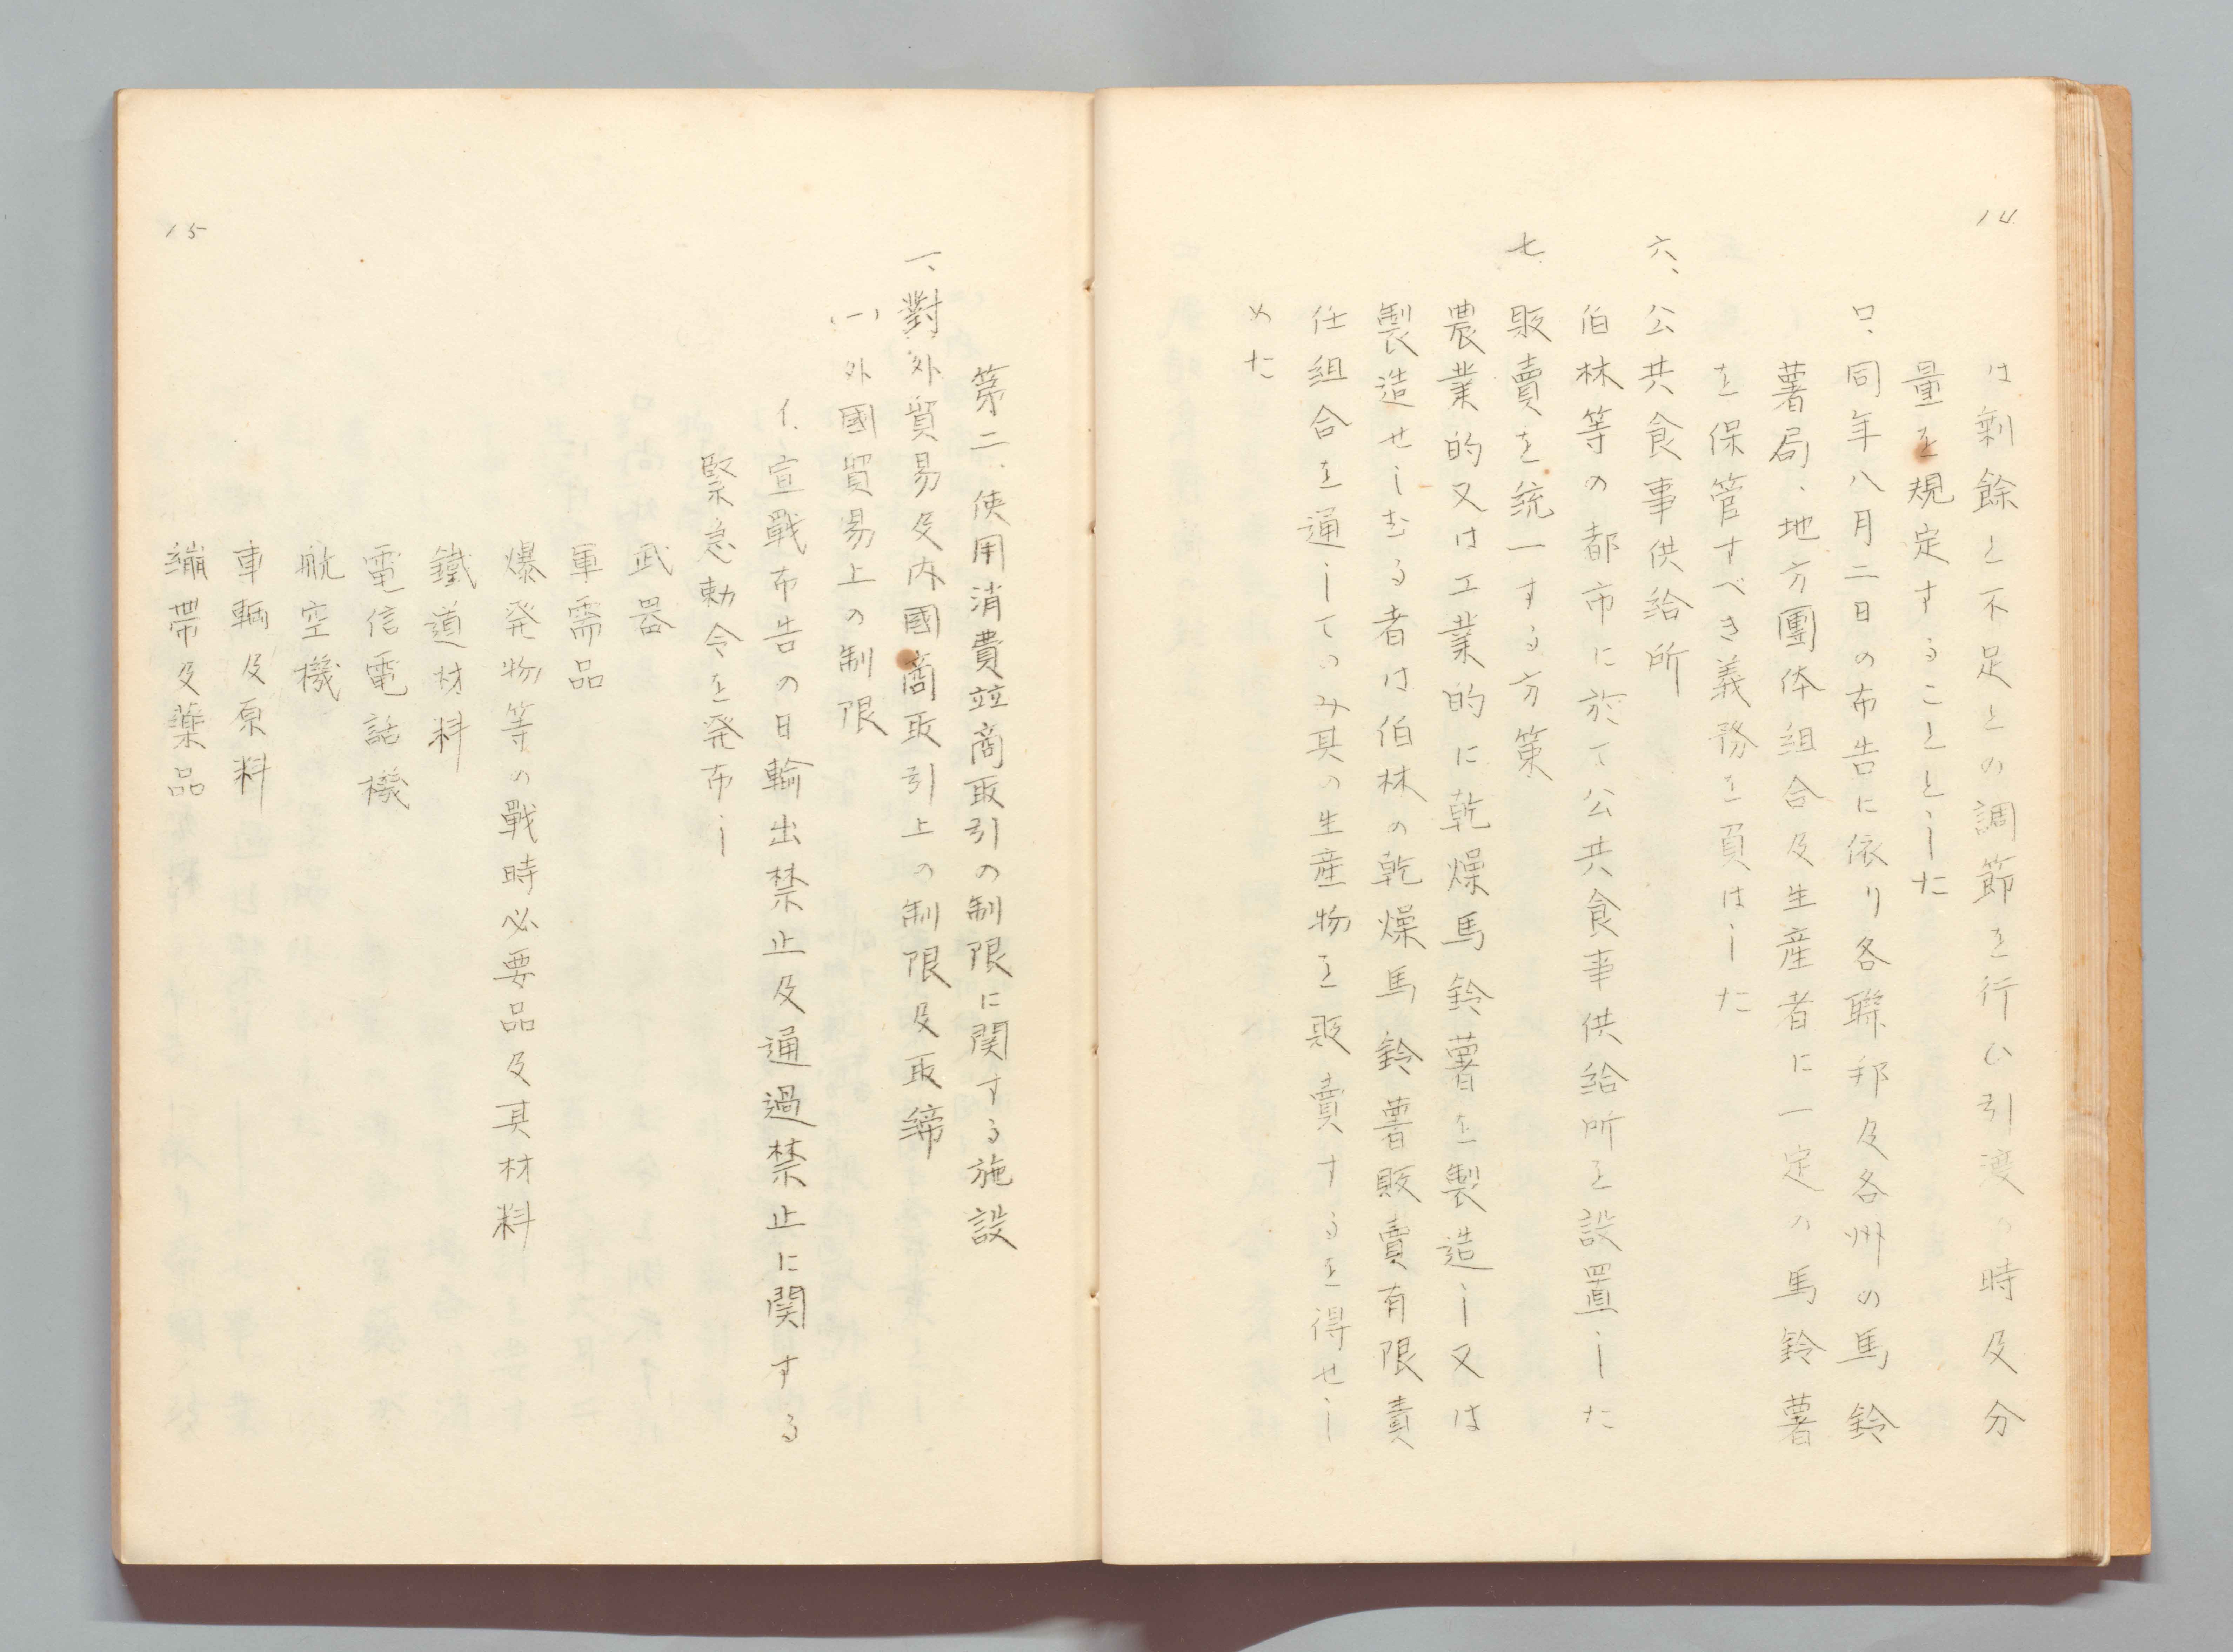 14
は剰餘と不足との調節を行ひ引渡の時及分
量を規定することとした
ロ、同年八月二日の布告に依り各聯邦及各州の馬鈴
薯局、地方團体組合及生産者に一定の馬鈴薯
を保管すべき義務を負はした
六、公共食事供給所
伯林等の都市に於て公共食事供給所を設置した
七、販賣を統一する方策
農業的又は工業的に乾燥馬鈴薯を製造し又は
製造せしむる者は伯林の乾燥馬鈴薯販賣有限責
任組合を通してのみ其の生産物を販賣するを得せし
めた
第二、使用消費並商取引の制限に関する施設
一、對外貿易及内國商取引上の制限及取締
(一)外國貿易上の制限
イ、宣戰布告の日輸出禁止及通過禁止に関する
緊急勅令を発布し
武器
軍需品
爆発物等の戰時必要品及其材料
鐵道材料
電信電話機
航空機
車輌及原料
繃帶及藥品
15